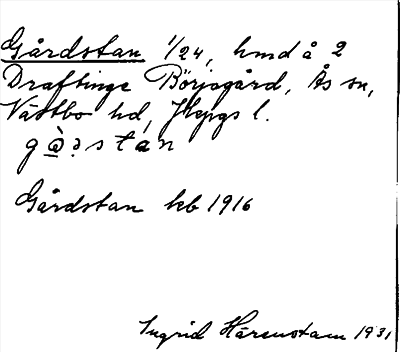 Gårdstan 1/24, hmd å 2
Draftinge Börjsgård, Ås sn,
Västbo hd, Jkpgs l.
Gårdstan kb 1916
Ingrid Härenstam 1931